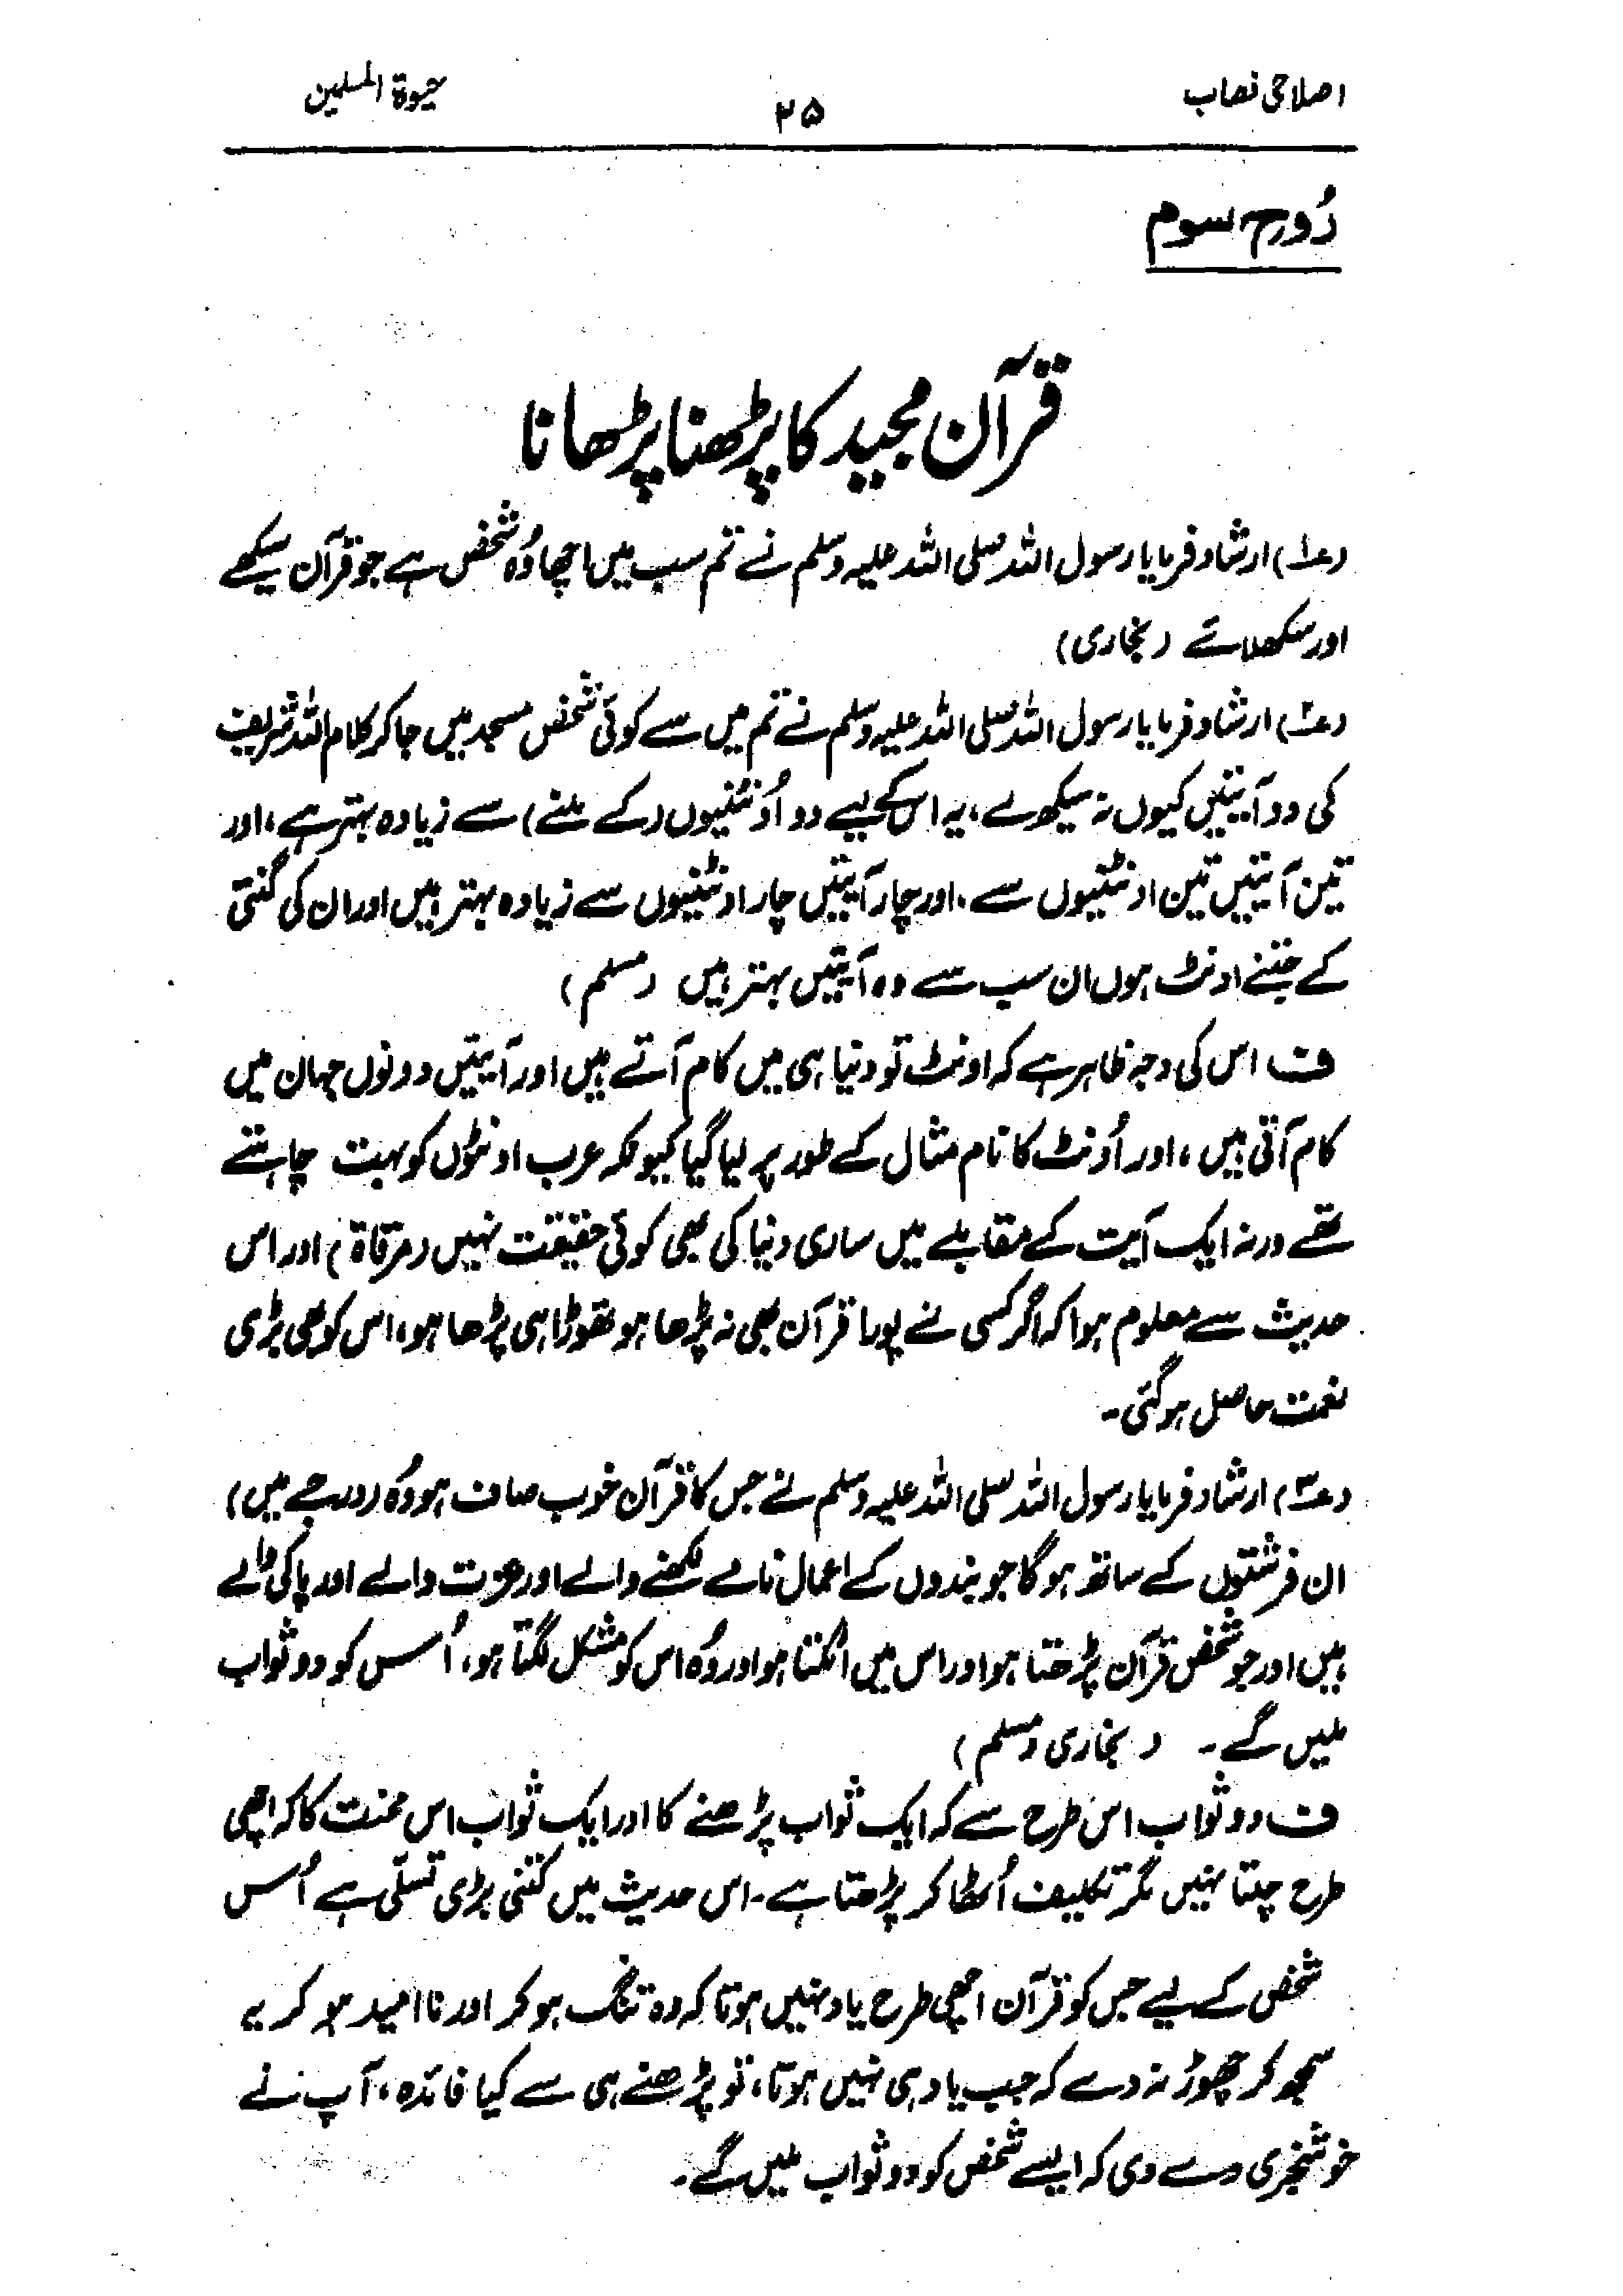 اصلاحی نصاب
۲۵
حیٰوۃ المسلمین
رُوح سوم
قرآن مجید کا پڑھنا پڑھانا
(۱) ارشاد فرمایا رسول اللہ صلی اللہ علیہ وسلم نے تم سب میں اچھا وُہ شخص ہے جو قرآن سیکھے
اور سکھلائے (بخاری)
(۲) ارشاد فرمایا رسول اللہ صلی اللہ علیہ وسلم نے تم میں سے کوئی شخص مسجد میں جا کر کلام اللہ شریف
کی دو آیتیں کیوں نہ سیکھ لے، یہ اس کے لیے دو اُونٹنیوں (کے ملنے) سے زیادہ بہتر ہے، اور
تین آیتیں تین اونٹنیوں سے، اور چار آیتیں چار اونٹنیوں سے زیادہ بہتر ہیں اور ان کی گنتی
کے جتنے اونٹ ہوں ان سب سے وہ آیتیں بہتر ہیں (مسلم)
ف اس کی وجہ ظاہر ہے کہ اونٹ تو دنیا ہی میں کام آتے ہیں اور آیتیں دونوں جہان میں
کام آتی ہیں، اور اُونٹ کا نام مثال کے طور پر لیا گیا کیونکہ عرب اونٹوں کو بہت چاہتے
تھے ورنہ ایک آیت کے مقابلے میں ساری دنیا کی بھی کوئی حقیقت نہیں (مرقاۃ) اور اس
حدیث سے معلوم ہوا کہ اگر کسی نے پورا قرآن بھی نہ پڑھا ہو تھوڑا ہی پڑھا ہو، اس کو بھی بڑی
نعمت حاصل ہو گئی۔
(۳) ارشاد فرمایا رسول اللہ صلی اللہ علیہ وسلم نے جس کا قرآن خوب صاف ہو وُہ (درجے میں)
ان فرشتوں کے ساتھ ہو گا جو بندوں کے اعمال نامے لکھنے والے اور عزت والے اور پاکی والے
ہیں اور جو شخص قرآن پڑھتا ہو اور اس میں اٹکتا ہو اور وُہ اس کو مشکل لگتا ہو، اُس کو دو ثواب
ملیں گے۔ (بخاری و مسلم)
ف دو ثواب اس طرح سے کہ ایک ثواب پڑھنے کا اور ایک ثواب اس محنت کا کہ اچھی
طرح چلتا نہیں مگر تکلیف اُٹھا کر پڑھتا ہے۔ اس حدیث میں کتنی بڑی تسلّی ہے اُس
شخص کے لیے جس کو قرآن اچھی طرح یاد نہیں ہوتا کہ وہ تنگ ہو کر اور نا امید ہو کر یہ
سمجھ کر چھوڑ نہ دے کہ جب یاد ہی نہیں ہوتا، تو پڑھنے ہی سے کیا فائدہ، آپ نے
خوشخبری دے دی کہ ایسے شخص کو دو ثواب ملیں گے۔